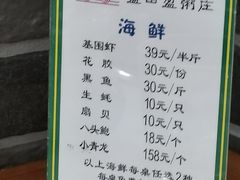 粥庄
海鲜
基围虾 39元/半斤
花胶 30元/份
黑鱼 30元/斤
生蚝 10元/只
扇贝 10元/只
八头鲍 18元/个
小青龙 158元/个
以上海鲜每桌任选2种